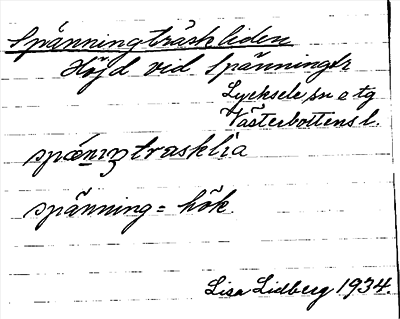 Spänningträskliden
Höjd vid Spänningtr.
Lycksele sn o tg
Västerbottens l.
spæniŋtræsklia
spänning = hök
Lisa Lidberg 1934.